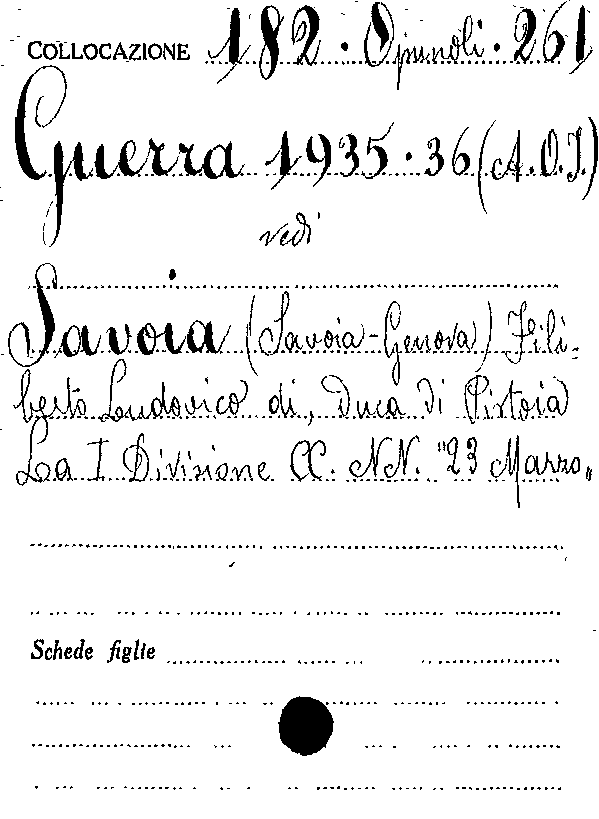 COLLOCAZIONE 182. Opuscoli. 261
Guerra 1935.36 (A.O.I.)
vedi
Savoia (Savoia-Genova) Fili-
berto Ludovico di, Duca di Pistoia
La I Divisione CC. NN. "23 Marzo„
Schede figlie